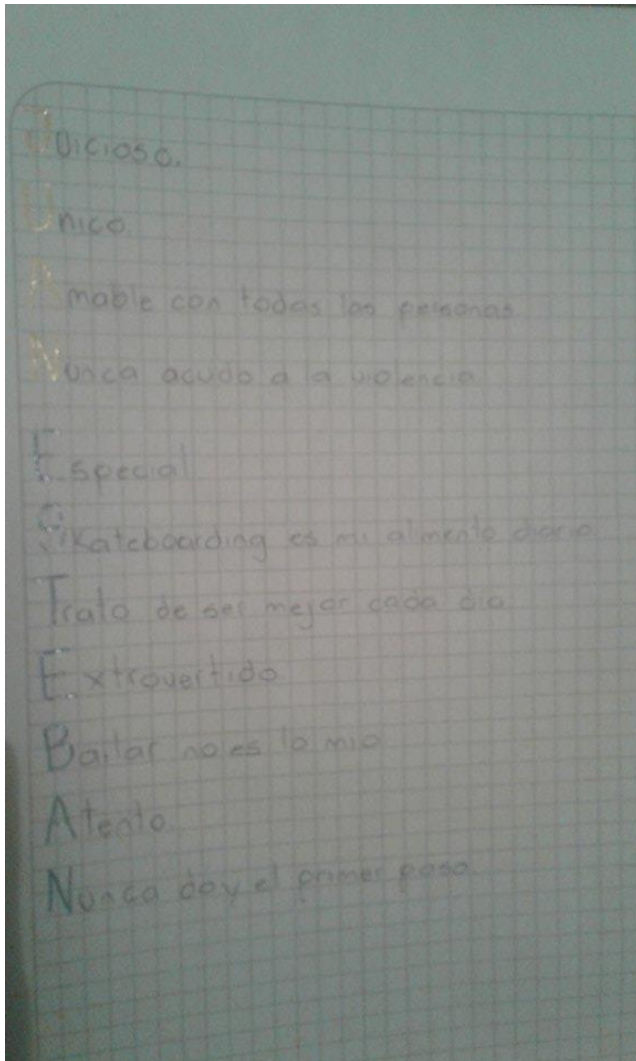 Juicioso.
Unico
Amable con todas las personas
Nunca acudo a la violencia
Especial
Skateboarding es mi alimento diario
Trato de ser mejor cada dia
Extrovertido
Bailar no es lo mio
Atento
Nunca doy el primer paso